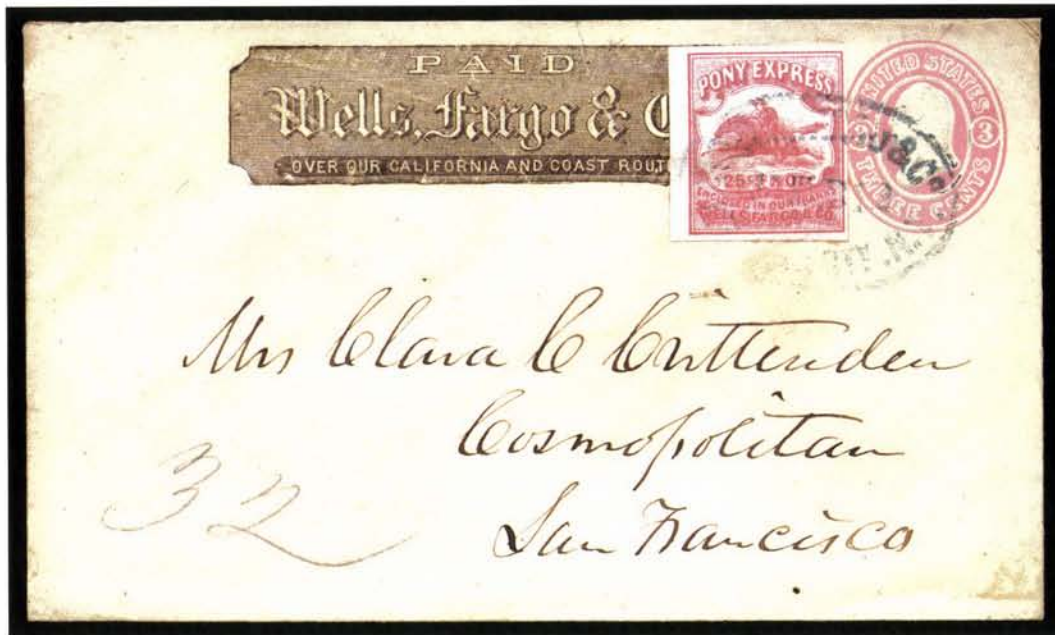 PAID
Wells, Fargo & C
OVER OUR CALIFORNIA AND COAST ROUT
PONY EXPRESS
25
ENCLOSED IN OUR FRANKS
WELLS, FARGO & CO.
UNITED STATES
3
THREE CENTS
& Co.
Mrs Clara C Crittenden
Cosmopolitan
San Francisco
32